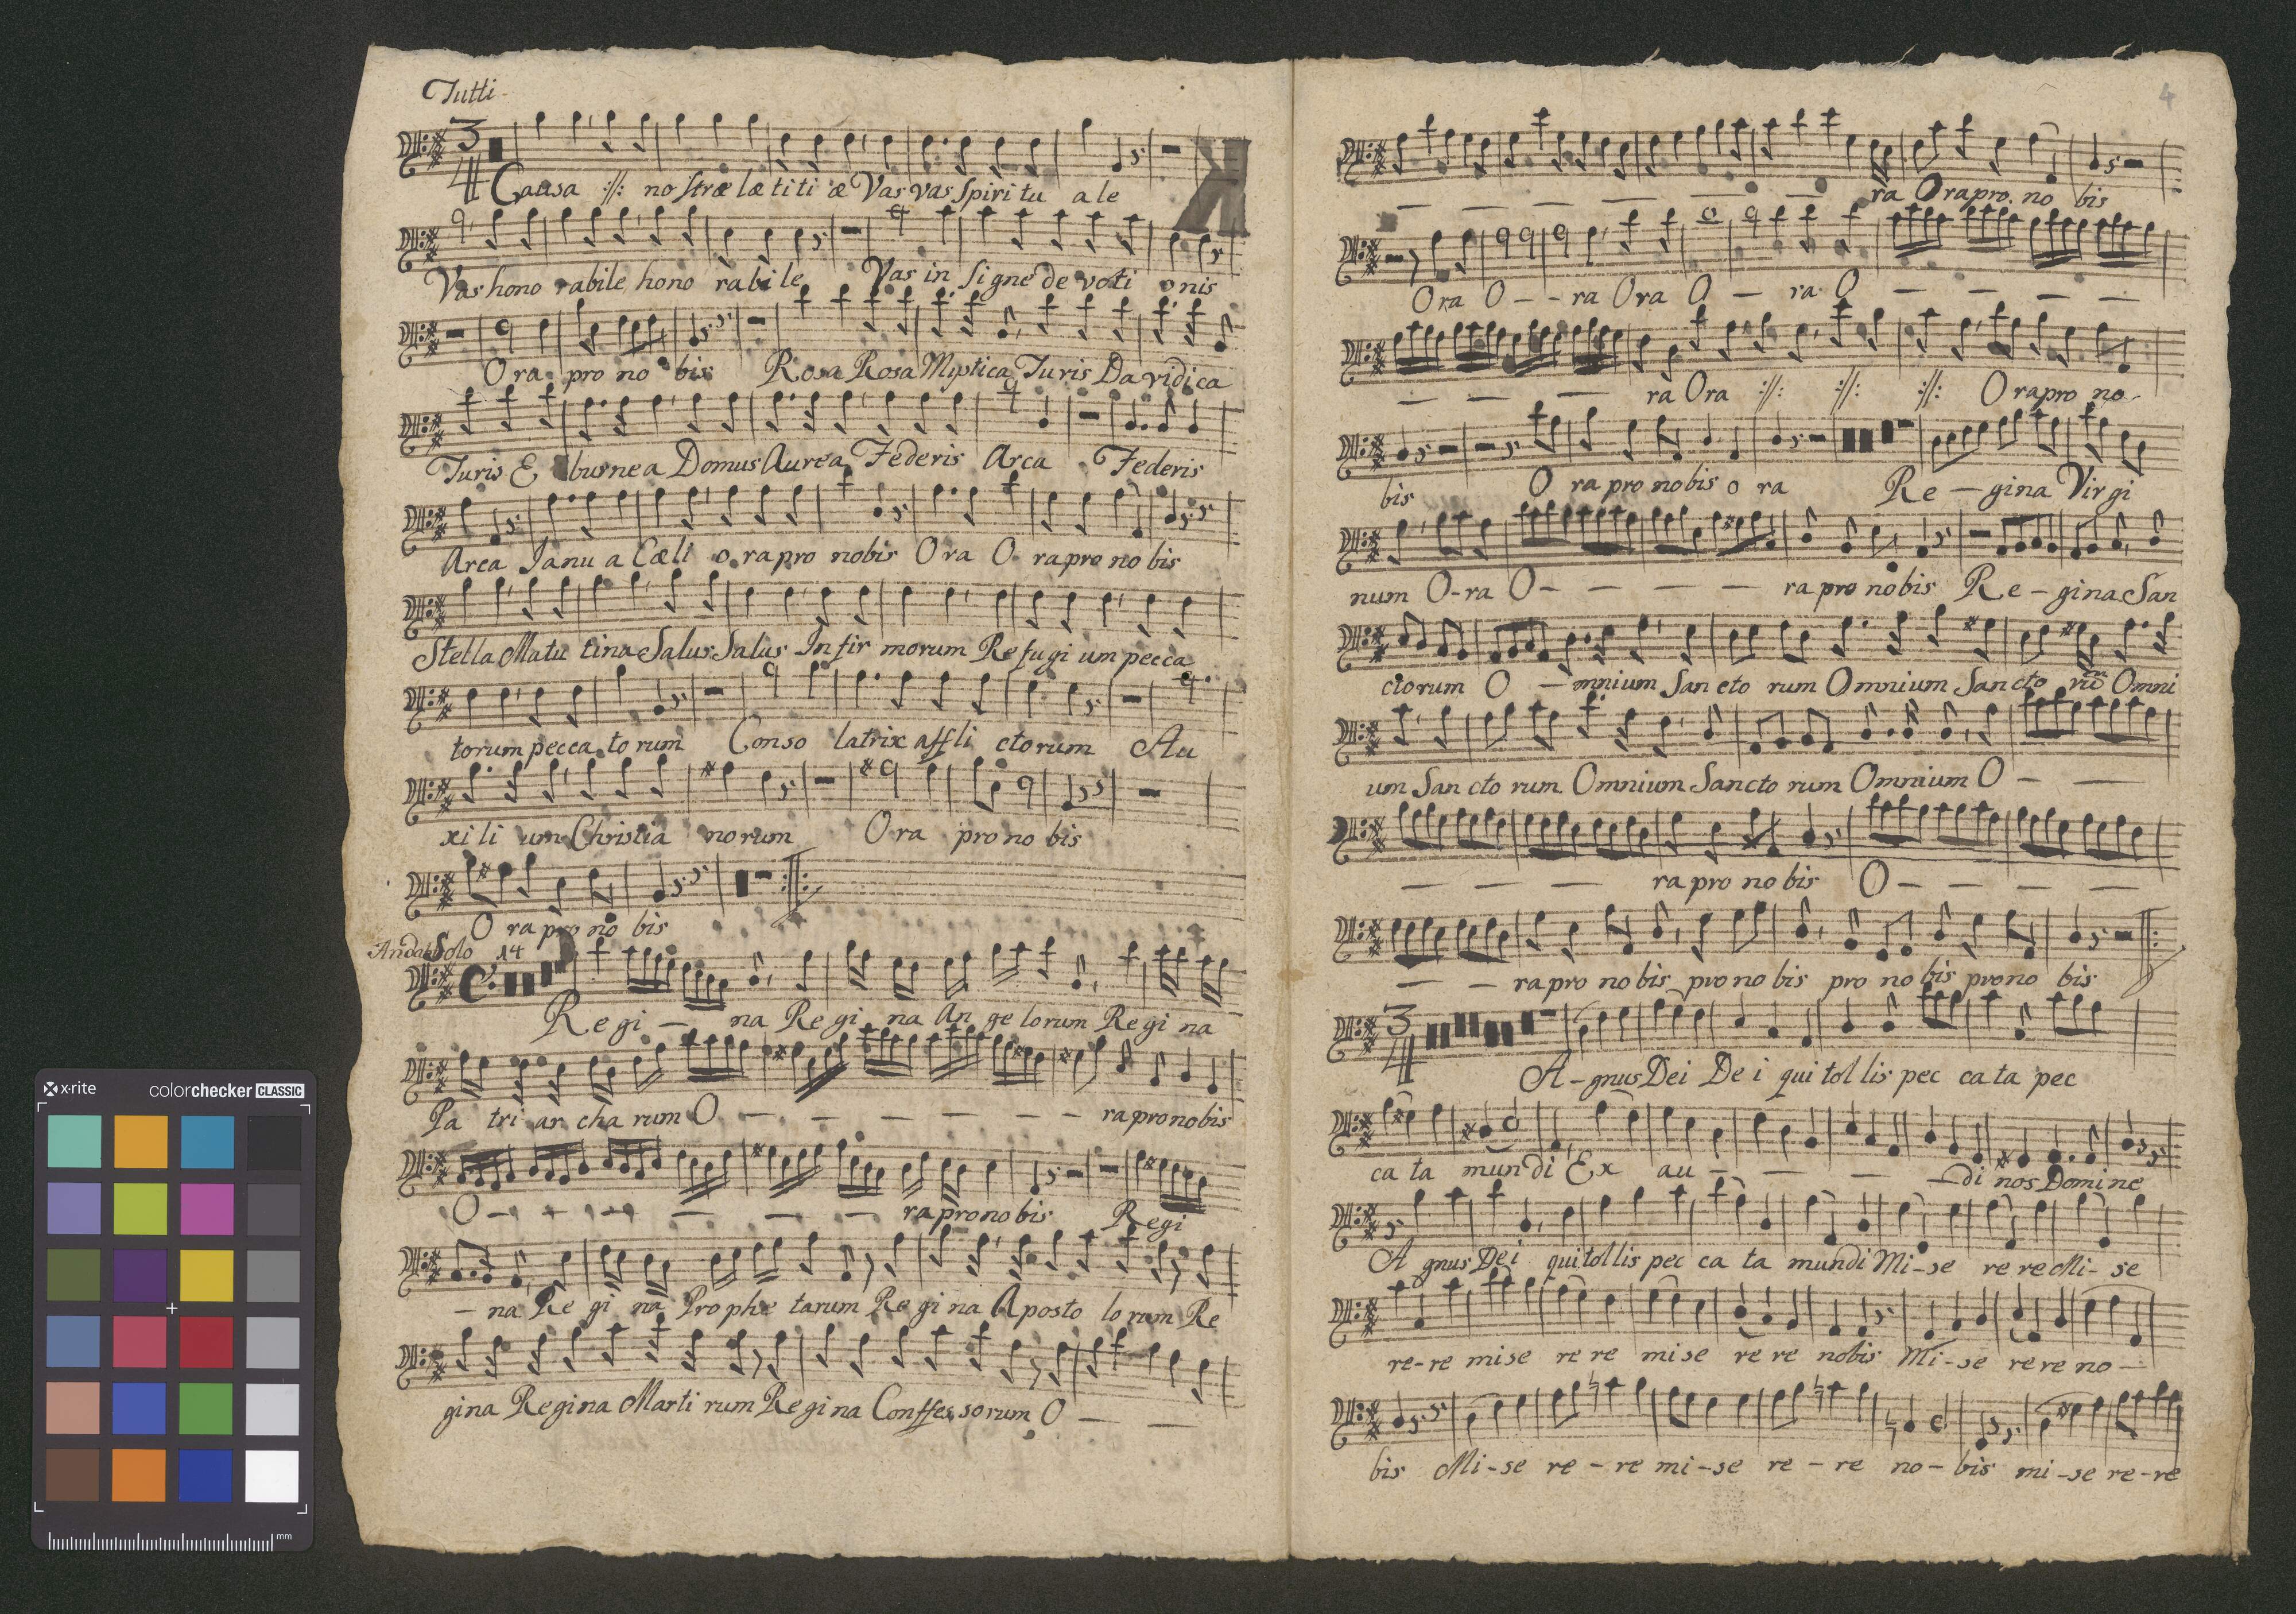 Tutti
3/4
Causa ://: nostræ lætiti æ Vas vas Spiritu ale
Vas hono rabile hono rabile Vas in signe de voti onis
Ora pro no bis Rosa Rosa Mystica Turis Davidica
Turis E burnea Domus Aurea Federis Arca Federis
Arca Janu a Cæli ora pro nobis Ora O ra pro no bis
Stella Matu tina Salus Salus Infir morum Re fugi um pecca
torum pecca to rum Conso latrix affli ctorum Au
xi li um Christia norum Ora pro no bis
O ra pro no bis
Solo 14
Re gi - na Re gi na An ge lorum Regi na
Pa tri ar cha rum O - - - - - - ra pro nobis
O - - - - - - ra pro no bis Regi
- na Re gi na Prophe tarum Re gi na Aposto lo rum Re
gina Regina Marti rum Re gi na Conffes sorum O - -
4
- - - - - - ra Ora pro no bis
Ora O - - ra Ora O - ra O - - - - -
- - - ra Ora :||: :||: :||: O ra pro no
bis O ra pro nobis o ra Re - gina Virgi
num O-ra O - - - - - ra pro nobis Re - gina San
ctorum O - mnium San cto rum Omnium San cto rũ Omni
um San cto rum Omnium Sancto rum Omnium O - - -
- - - ra pro no bis O - - - -
- - ra pro nobis pro no bis pro no bis pro no bis
3/4
A - gnus Dei De i qui tol lis pec ca ta pec
ca ta mundi Ex au - - - - di nos Domine
A gnus De i qui tollis pec ca ta mundi Mi - se re re Mi - se
re-re mise re re mise re re nobis Mi - se re re no -
bis Mi - se re - re mi - se re - re no - bis mi - se re - re
x-rite colorchecker CLASSIC
mm